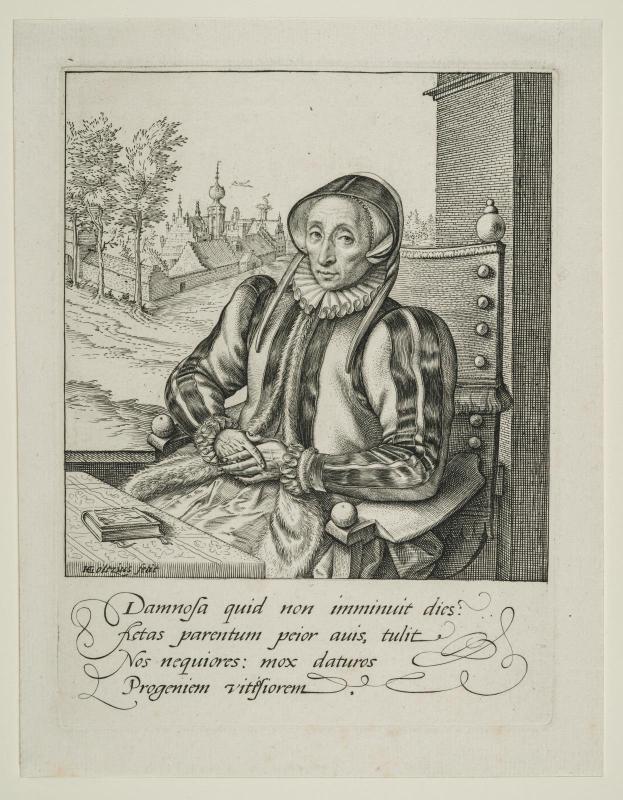 HGoltzius fecit
Damnosa quid non imminuit dies?
Aetas parentum peior auis, tulit
Nos nequiores: mox daturos
Progeniem vitiosiorem.